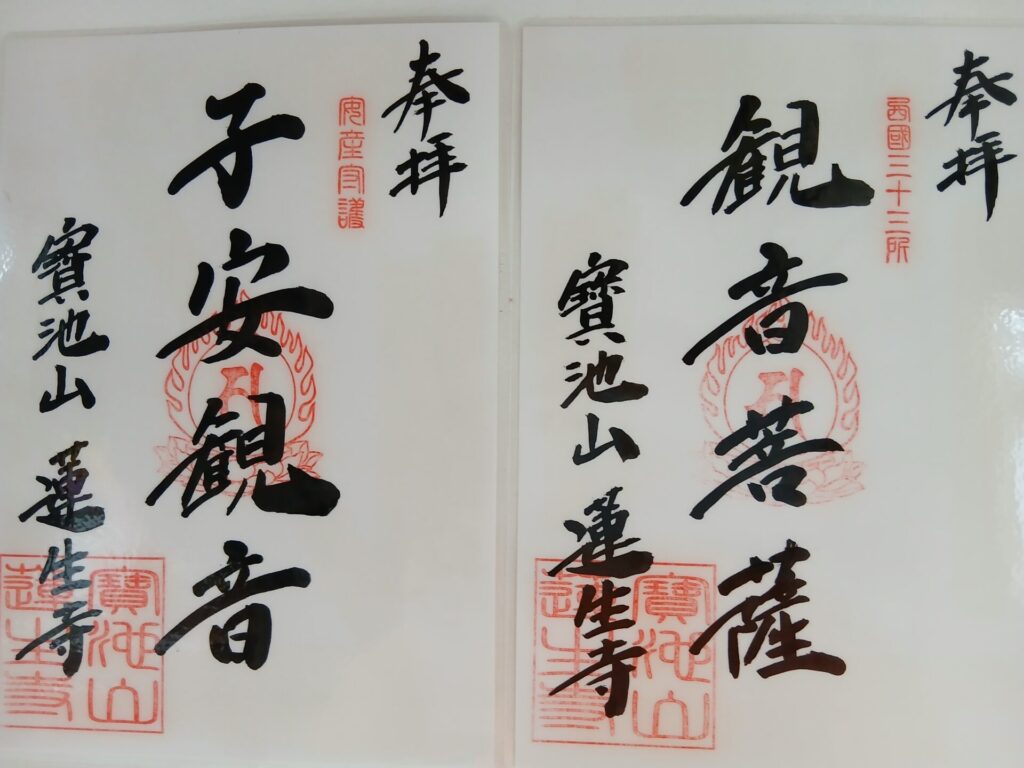 奉拝
西國三十三所
観音菩薩
寳池山 蓮生寺
寳池山
蓮生寺
奉拝
安産守護
子安観音
寳池山 蓮生寺
寳池山
蓮生寺